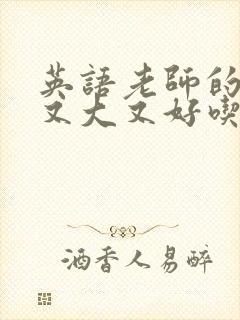 英語老師的
又大又好喫
酒香人易醉